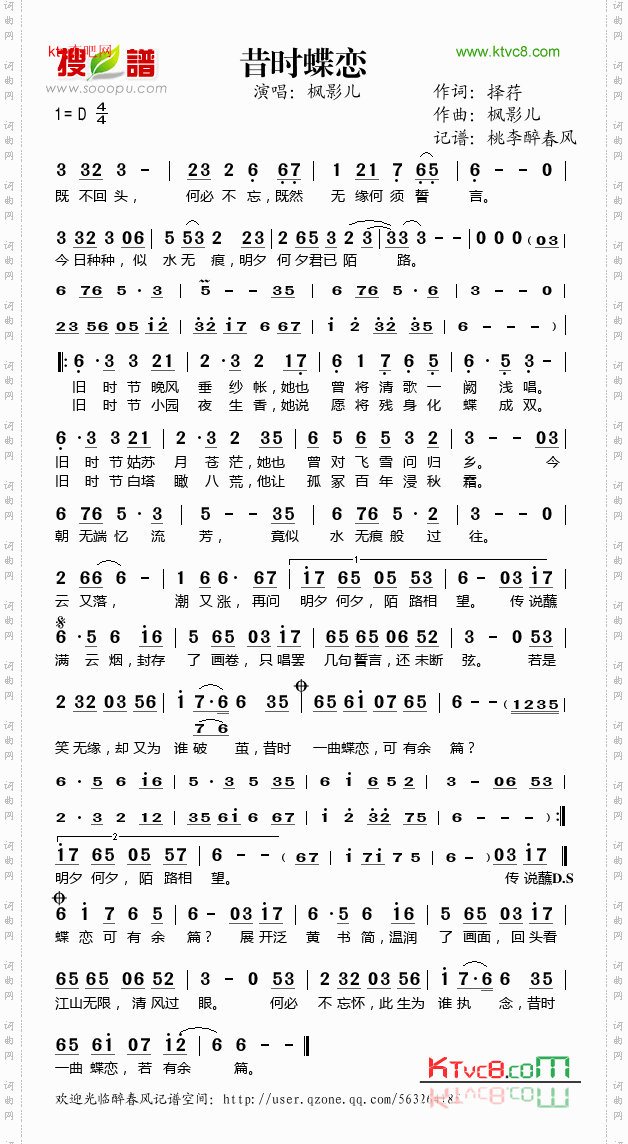 昔时蝶恋
www.ktvc8.com
搜谱
www.sooopu.com
演唱：枫影儿
作词：择荇
作曲：枫影儿
记谱：桃李醉春风
1=D 4/4
3 32 3 - | 23 2 6 67 | 1 21 7 65 | 6 - - 0 |
既 不回 头， 何必 不 忘，既然 无 缘何 须 誓 言。
3 32 3 06 | 5 53 2 23 | 2 65 3 2 3 | 33 3 - - | 0 0 0 (03 |
今 日种 种，似 水 无 痕，明夕 何 夕君 已 陌 路。
6 76 5 · 3 | 5 - - 35 | 6 76 5 · 6 | 3 - - 0 |
23 56 05 12 | 32 17 6 67 | 1 2 32 35 | 6 - - - ) |
6 · 3 3 21 | 2 · 3 2 17 | 6 1 7 6 5 | 6 · 5 3 - |
旧 时 节 晚风 垂 纱 帐，她也 曾 将 清 歌 一 阙 浅 唱。
旧 时 节 小园 夜 生 香，她说 愿 将 残 身 化 蝶 成 双。
6 · 3 3 21 | 2 · 3 2 35 | 6 5 6 5 3 2 | 3 - - 03 |
旧 时 节 姑苏 月 苍 茫，她也 曾 对 飞 雪 问 归 乡。 今
旧 时 节 白塔 瞰 八 荒，他让 孤 冢 百 年 浸 秋 霜。
6 76 5 · 3 | 5 - - 35 | 6 76 5 · 2 | 3 - - 0 |
朝 无端 忆 流 芳， 竟似 水 无痕 般 过 往。
2 66 6 - | 1 66 6· 67 | 1 17 65 05 35 | 6 - 03 17 |
云 又落， 潮 又 涨，再问 明夕 何夕，陌 路相 望。 传 说蘸
6 · 5 6 16 | 5 65 03 17 | 65 65 06 52 | 3 - 0 53 |
满 云 烟，封存 了 画卷，只 唱罢 几句 誓言，还 未断 弦。 若是
2 32 03 56 | 1 7·6 6 35 | 65 61 07 65 | 6 - - (1235 |
7 6
笑 无缘，却 又为 谁 破 茧，昔时 一曲 蝶恋，可 有余 篇？
6 · 5 6 16 | 5 · 3 5 35 | 6 1 6 5 2 | 3 - - 06 53 |
2 · 3 2 12 | 35 61 6 67 | 1 2 32 75 | 6 - - - ) :|
2 17 65 05 57 | 6 - - (67 | 1 71 7 5 | 6 - ) 03 17 ||
明夕 何夕，陌 路相 望。 传 说蘸D.S
6 1 7 6 5 | 6 - 03 17 | 6 · 5 6 16 | 5 65 03 17 |
蝶 恋 可 有 余 篇？ 展 开泛 黄 书 简，温润 了 画面，回 头看
65 65 06 52 | 3 - 0 53 | 2 32 03 56 | 1 7·6 6 35 |
江山 无限，清 风过 眼。 何必 不 忘怀，此 生为 谁 执 念，昔时
65 61 07 12 | 6 6 - - ||
一曲 蝶恋，若 有余 篇。
KTvc8.com
欢迎光临醉春风记谱空间：http://user.qzone.qq.com/5632